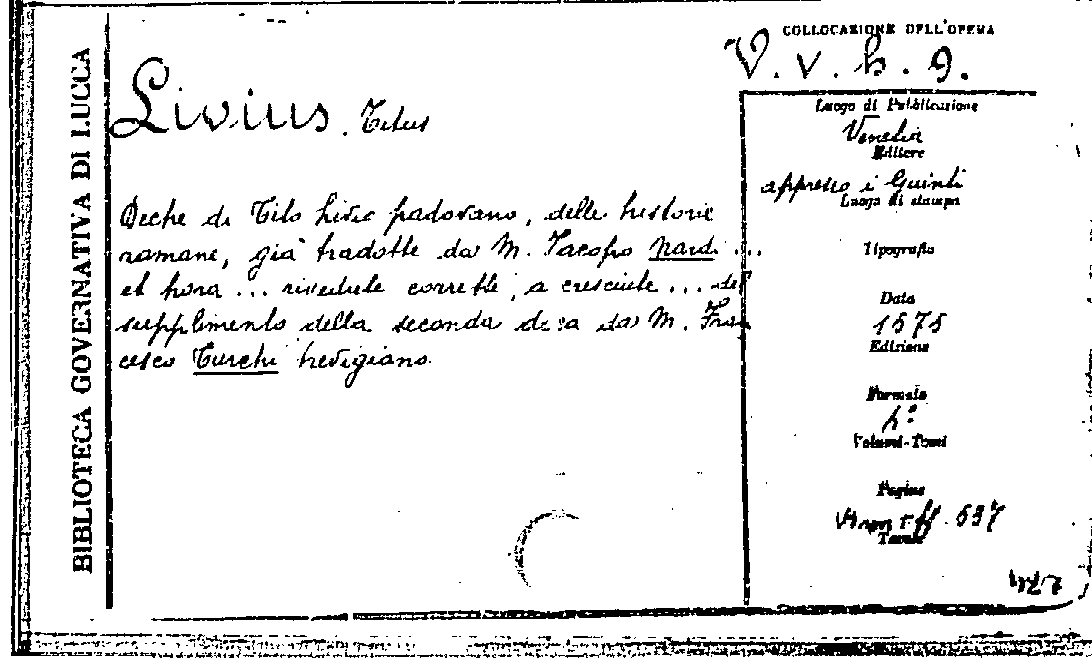 BIBLIOTECA GOVERNATIVA DI LUCCA
COLLOCAZIONE DELL'OPERA
V. v. h. 9.
Livius. Titus
Deche di Tito Livio padovano, delle historie
romane, già tradotte da M. Jacopo Nardi ...
et hora ... rivedute corrette, a cresciute ... del
supplimento della seconda deca da M. Fran
cesco Turchi trevigiano.
Luogo di Pubblicazione
Venetia
Editore
appresso i Guinti
Luogo di stampa
Tipografia
Data
1575
Edizione
Formato
4°
Volumi-Tomi
Pagine
ff. 637
Tavole